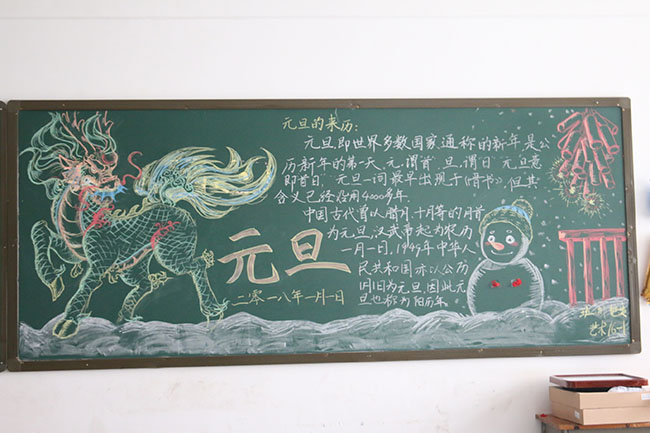 元旦的来历:
元旦即世界多数国家通称的"新年"是公
历新年的第一天,元,谓"首",旦,谓"日""元旦意
即"首日","元旦"一词最早出现于《晋书》,但其
含义已经沿用4000多年.
中国古代曾以腊月、十月等的月首
为元旦,汉武帝起为农历
一月一日,1949年中华人
民共和国亦以公历
1月1日为元旦,因此元
旦也称为阳历年.
元旦
二零一八年一月一日
艺术